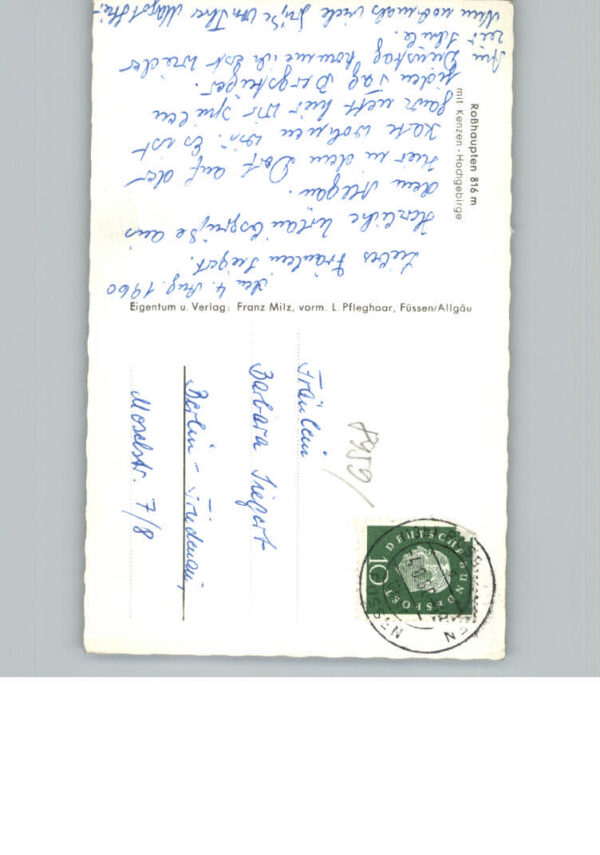 den 4. Aug. 1960
Liebes Fräulein Siegert.
Herzliche Urlaubsgrüße aus
dem Allgäu.
Hier in dem Dorf auf der
Karte wohnen wir. Es ist
ganz nett hier wir
jeden Tag Bergsteigen.
Am Dienstag komme ich erst wieder
zur Schule.
Nun nochmals viele Grüße von Ihrer
Roßhaupten 816 m
mit Kenzen-Hochgebirge
Eigentum u. Verlag: Franz Milz, vorm. L. Pfleghaar, Füssen/Allgäu
Fräulein
Barbara Siegert
Berlin - Friedenau
Moselstr. 7/8
8959/
DEUTSCHE BUNDESPOST
10